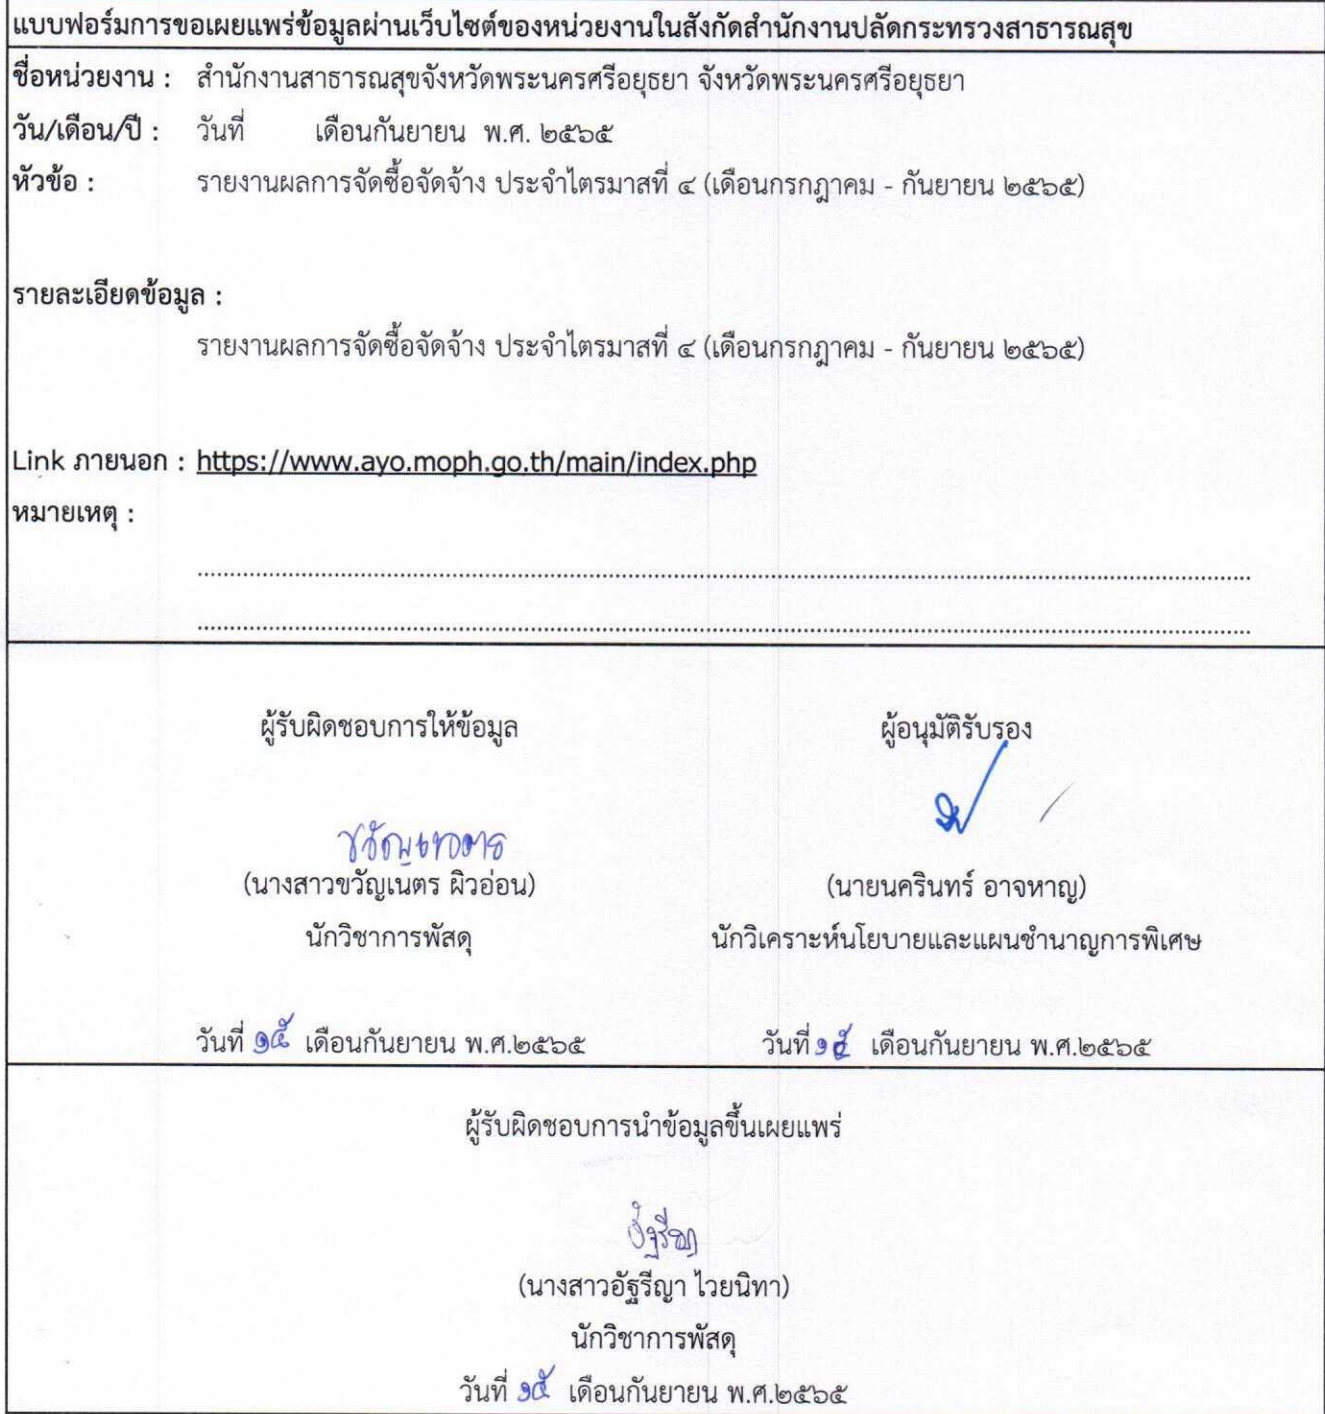 แบบฟอร์มการขอเผยแพร่ข้อมูลผ่านเว็บไซต์ของหน่วยงานในสังกัดสำนักงานปลัดกระทรวงสาธารณสุข
ชื่อหน่วยงาน : สำนักงานสาธารณสุขจังหวัดพระนครศรีอยุธยา จังหวัดพระนครศรีอยุธยา
วัน/เดือน/ปี : วันที่ เดือนกันยายน พ.ศ. ๒๕๖๕
หัวข้อ : รายงานผลการจัดซื้อจัดจ้าง ประจำไตรมาสที่ ๔ (เดือนกรกฎาคม - กันยายน ๒๕๖๕)
รายละเอียดข้อมูล :
รายงานผลการจัดซื้อจัดจ้าง ประจำไตรมาสที่ ๔ (เดือนกรกฎาคม - กันยายน ๒๕๖๕)
Link ภายนอก : https://www.ayo.moph.go.th/main/index.php
หมายเหตุ :
ผู้รับผิดชอบการให้ข้อมูล ผู้อนุมัติรับรอง
ขวัญเนตร
(นางสาวขวัญเนตร ผิวอ่อน) (นายนครินทร์ อาจหาญ)
นักวิชาการพัสดุ นักวิเคราะห์นโยบายและแผนชำนาญการพิเศษ
วันที่ ๑๕ เดือนกันยายน พ.ศ.๒๕๖๕ วันที่ ๑๕ เดือนกันยายน พ.ศ.๒๕๖๕
ผู้รับผิดชอบการนำข้อมูลขึ้นเผยแพร่
อัฐรีญา
(นางสาวอัฐรีญา ไวยนิทา)
นักวิชาการพัสดุ
วันที่ ๑๕ เดือนกันยายน พ.ศ.๒๕๖๕